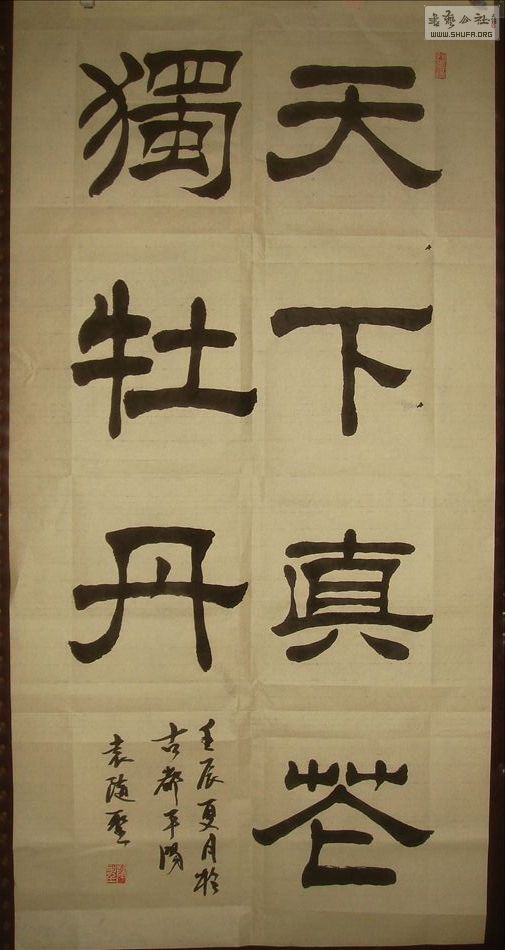 天下真花
獨牡丹
壬辰夏月於
古都平陽
袁隨聖
書藝公社
WWW.SHUFA.ORG